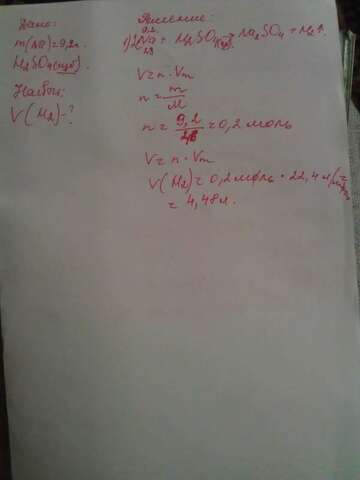 Дано:
m(Na)=9,2г.
H₂SO₄(изб)
Найти:
V(H₂)-?
Решение:
9,2
1) 2Na + H₂SO₄(изб) → Na₂SO₄ + H₂↑
V=n·Vm
n=m/M
n=9,2/46=0,2 моль
V=n·Vm
V(H₂)=0,2 моль·22,4 л/моль=
=4,48л.